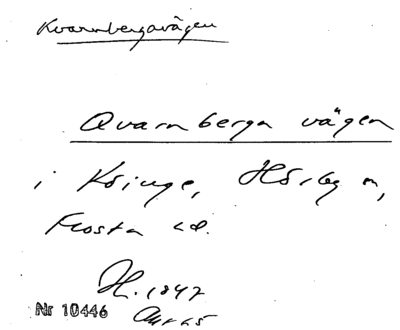 Kvarnbergavägen
Qvarnberga vägen
i Köinge, Hörby sn,
Frosta hd.
H. 1847
Nr 10446